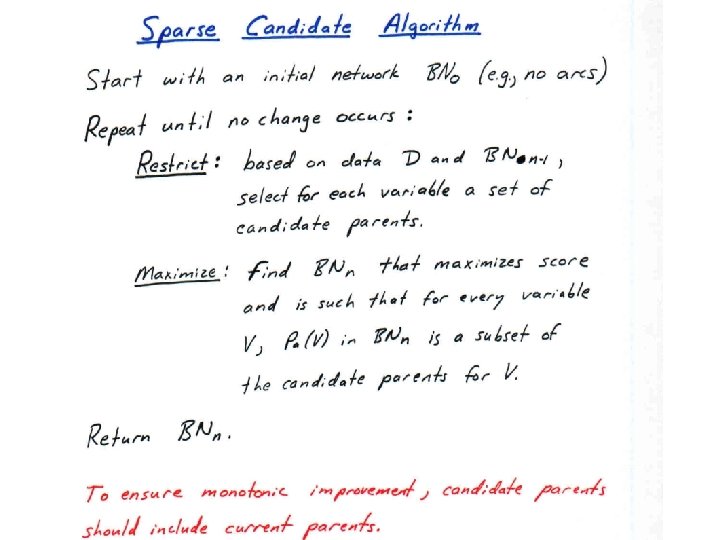 Sparse Candidate Algorithm
Start with an initial network BN0 (e.g., no arcs)
Repeat until no change occurs :
Restrict : based on data D and BNn-1 ,
select for each variable a set of
candidate parents.
Maximize : find BNn that maximizes score
and is such that for every variable
V, Pa(V) in BNn is a subset of
the candidate parents for V.
Return BNn.
To ensure monotonic improvement, candidate parents
should include current parents.